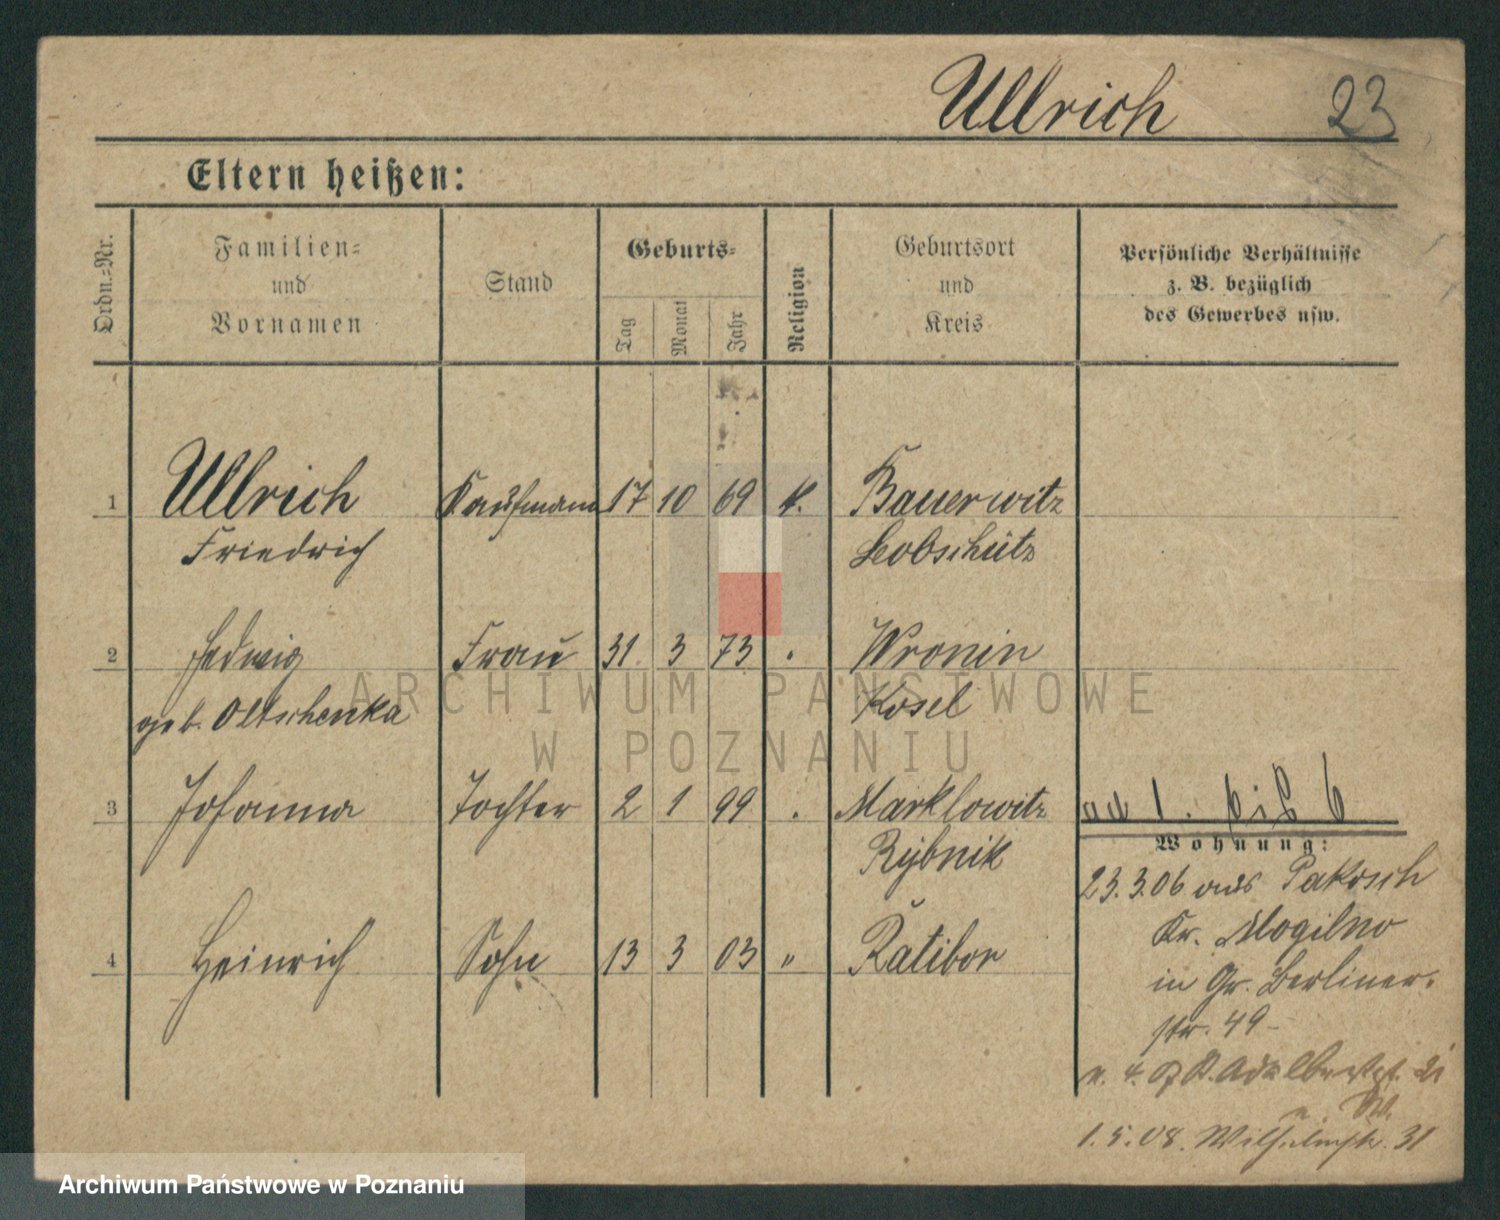 Ullrich 23
Eltern heißen:
Ordn.-Nr.
Familien-
und
Vornamen
Stand
Geburts-
Tag
Monat
Jahr
Religion
Geburtsort
und
Kreis
Persönliche Verhältnisse
z. B. bezüglich
des Gewerbes usw.
1 Ullrich Kaufmann 17 10 69 k. Bauerwitz
Friedrich Leobschütz
2 Hedwig Frau 31 3 73 Wronin
geb. Oltschenka Kosel
3 Johanna Tochter 2 1 99 Marklowitz
Rybnik
4 Heinrich Sohn 13 3 03 " Ratibor
ad 1. bis 6
Wohnung:
23.3.06 aus Pakosch
Kr. Mogilno
in Gr. Berliner-
str. 49
1.5.08. Wilhelmstr. 31
ARCHIWUM PAŃSTWOWE
W POZNANIU
Archiwum Państwowe w Poznaniu